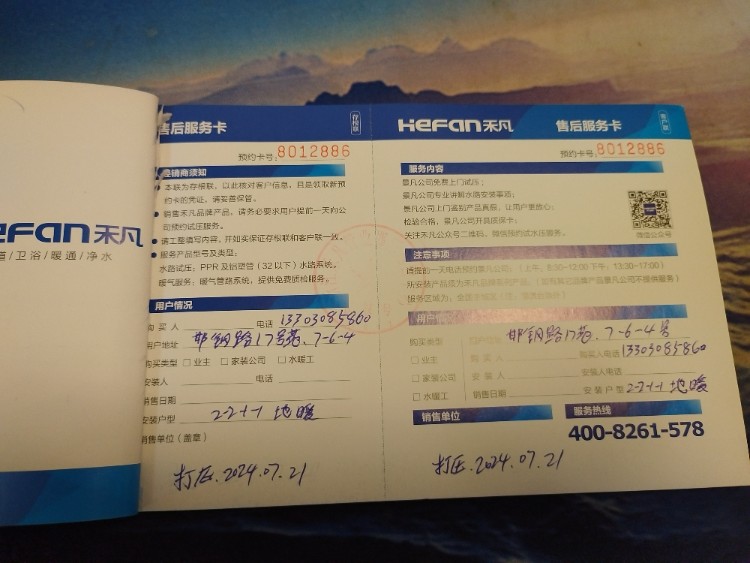 efan禾凡
/卫浴/暖通/净水
售后服务卡
存根联
预约卡号:8012886
经销商须知
本联为存根联，以此核对客户信息，且是领取新预
约卡的凭证，请妥善保管。
销售禾凡品牌产品，请务必要求用户提前一天向公
司预约试压服务。
请工整填写内容，并如实保证存根联和客户联一致。
服务产品型号及类型：
水路试压：PPR及铝塑管（32以下）水路系统。
暖气服务：暖气管路系统，提供免费质检服务。
用户情况
购买人 电话 13303085860
用户地址 邯钢路17号巷、7-6-4
购买类型 □业主 □家装公司 □水暖工
安装人 电话
销售日期
安装户型 2-2+1-1 地暖
销售单位（盖章）
打压.2024.07.21
HeFan禾凡 售后服务卡
客户联
预约卡号:8012886
服务内容
景凡公司免费上门试压；
景凡公司专业讲解水路安装事项；
景凡公司上门鉴别产品真假，让用户更放心；
检验合格，景凡公司开具质保卡；
关注禾凡公众号二维码，微信预约试水压服务。
微信公众号
注意事项
请提前一天电话预约景凡公司：（上午：8:30-12:00 下午：13:30-17:00）
购买类型 邯钢路17巷、7-6-4号
□业主 购买人 购买人电话 13303085860
□家装公司 安装人 安装人电话
□水暖工 销售日期 安装户型 2-2+1-1 地暖
销售单位 服务热线
400-8261-578
打压.2024.07.21